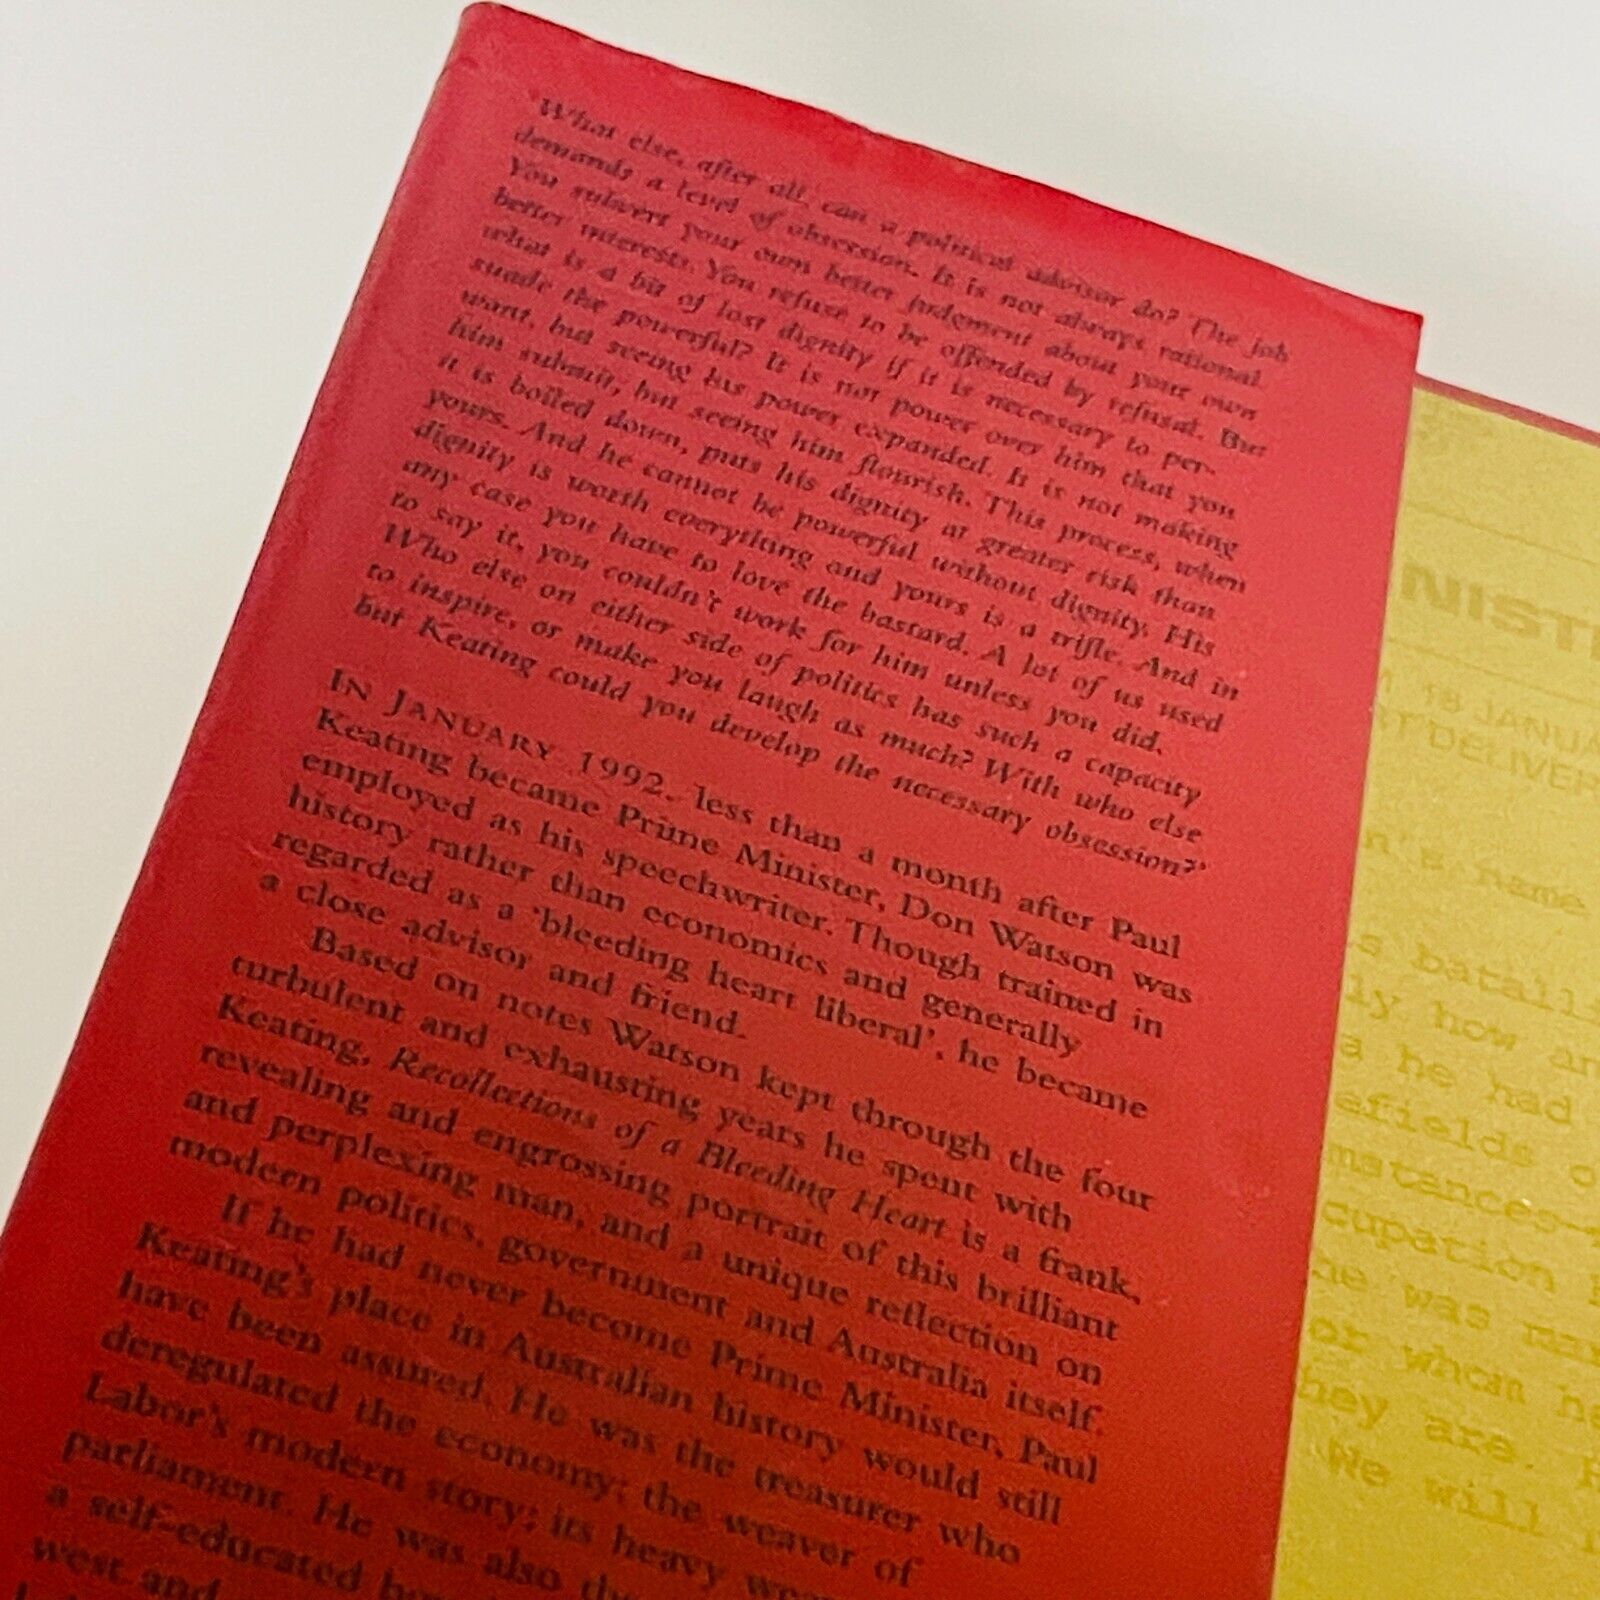 'What else, after all, can a political advisor do? The job
demands a level of obsession. It is not always rational.
You subvert your own better judgement about your own
better interests. You refuse to be offended by refusal. But
what is a bit of lost dignity if it is necessary to per-
suade the powerful? It is not power over him that you
want, but seeing his power expanded. It is not making
him submit, but seeing him flourish. This process, when
it is boiled down, puts his dignity at greater risk than
yours. And he cannot be powerful without dignity. His
dignity is worth everything and yours is a trifle. And in
any case you have to love the bastard. A lot of us used
to say it, you couldn't work for him unless you did.
Who else on either side of politics has such a capacity
to inspire, or make you laugh as much? With who else
but Keating could you develop the necessary obsession?'
IN JANUARY 1992, less than a month after Paul
Keating became Prime Minister, Don Watson was
employed as his speechwriter. Though trained in
history rather than economics and generally
regarded as a 'bleeding heart liberal', he became
a close advisor and friend.
Based on notes Watson kept through the four
turbulent and exhausting years he spent with
Keating, Recollections of a Bleeding Heart is a frank,
revealing and engrossing portrait of this brilliant
and perplexing man, and a unique reflection on
modern politics, government and Australia itself.
If he had never become Prime Minister, Paul
Keating's place in Australian history would still
have been assured. He was the treasurer who
deregulated the economy; the weaver of
Labor's modern story; its heavy
parliament. He was also the
a self-educated
west and
NIST
18 JANUA
DELIVER
n's name
s batalli
ly how an
a he had
efields o
mstances
cupation
he was mar
or whom he
hey are.
We will